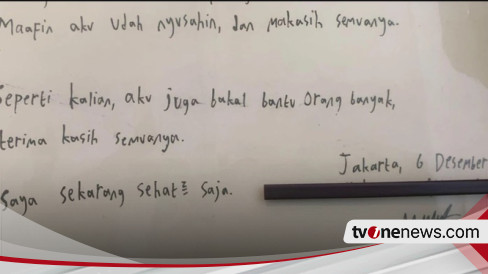 Maafin aku udah nyusahin, dan makasih semuanya.
Seperti kalian, aku juga bakal bantu orang banyak,
terima kasih semuanya.
Jakarta, 6 Desember
Saya sekarang sehat² saja.
tvonenews.com